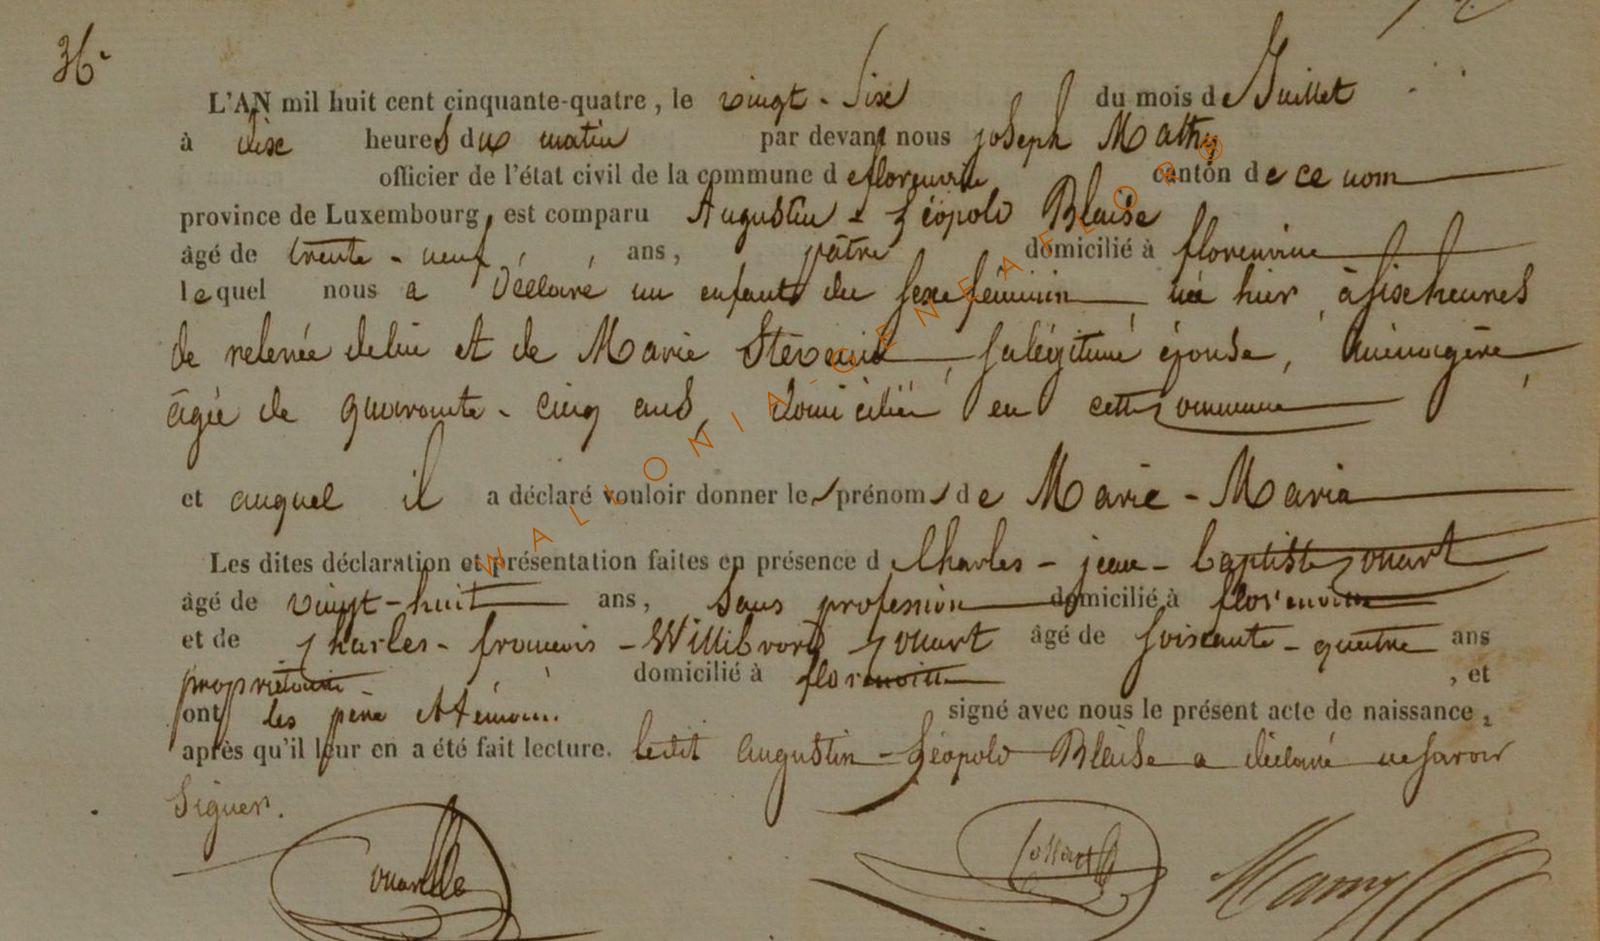 36.
L'AN mil huit cent cinquante-quatre, le vingt-six du mois de Juillet
à dix heures du matin par devant nous joseph Mathy
officier de l'état civil de la commune de florenville canton de ce nom
province de Luxembourg, est comparu Augustin-Léopold Blaise
âgé de trente-neuf ans, pâtre domicilié à florenville
lequel nous a déclaré un enfant du sexe féminin née hier, à six heures
de relevée de lui et de Marie Stevenin, sa légitime épouse, ménagère,
âgée de quarante-cinq ans, domiciliée en cette commune
et auquel il a déclaré vouloir donner les prénoms de Marie-Maria
Les dites déclaration et présentation faites en présence de Charles-jean-baptiste
âgé de vingt-huit ans, sans profession domicilié à florenville
et de Charles-françois-Willibrord âgé de soixante-quatre ans
propriétaire domicilié à florenville, et
ont les père et témoins signé avec nous le présent acte de naissance,
après qu'il leur en a été fait lecture. ledit augustin-Léopold Blaise a déclaré ne savoir
signer.
WALLONIA-GENEAFLORE